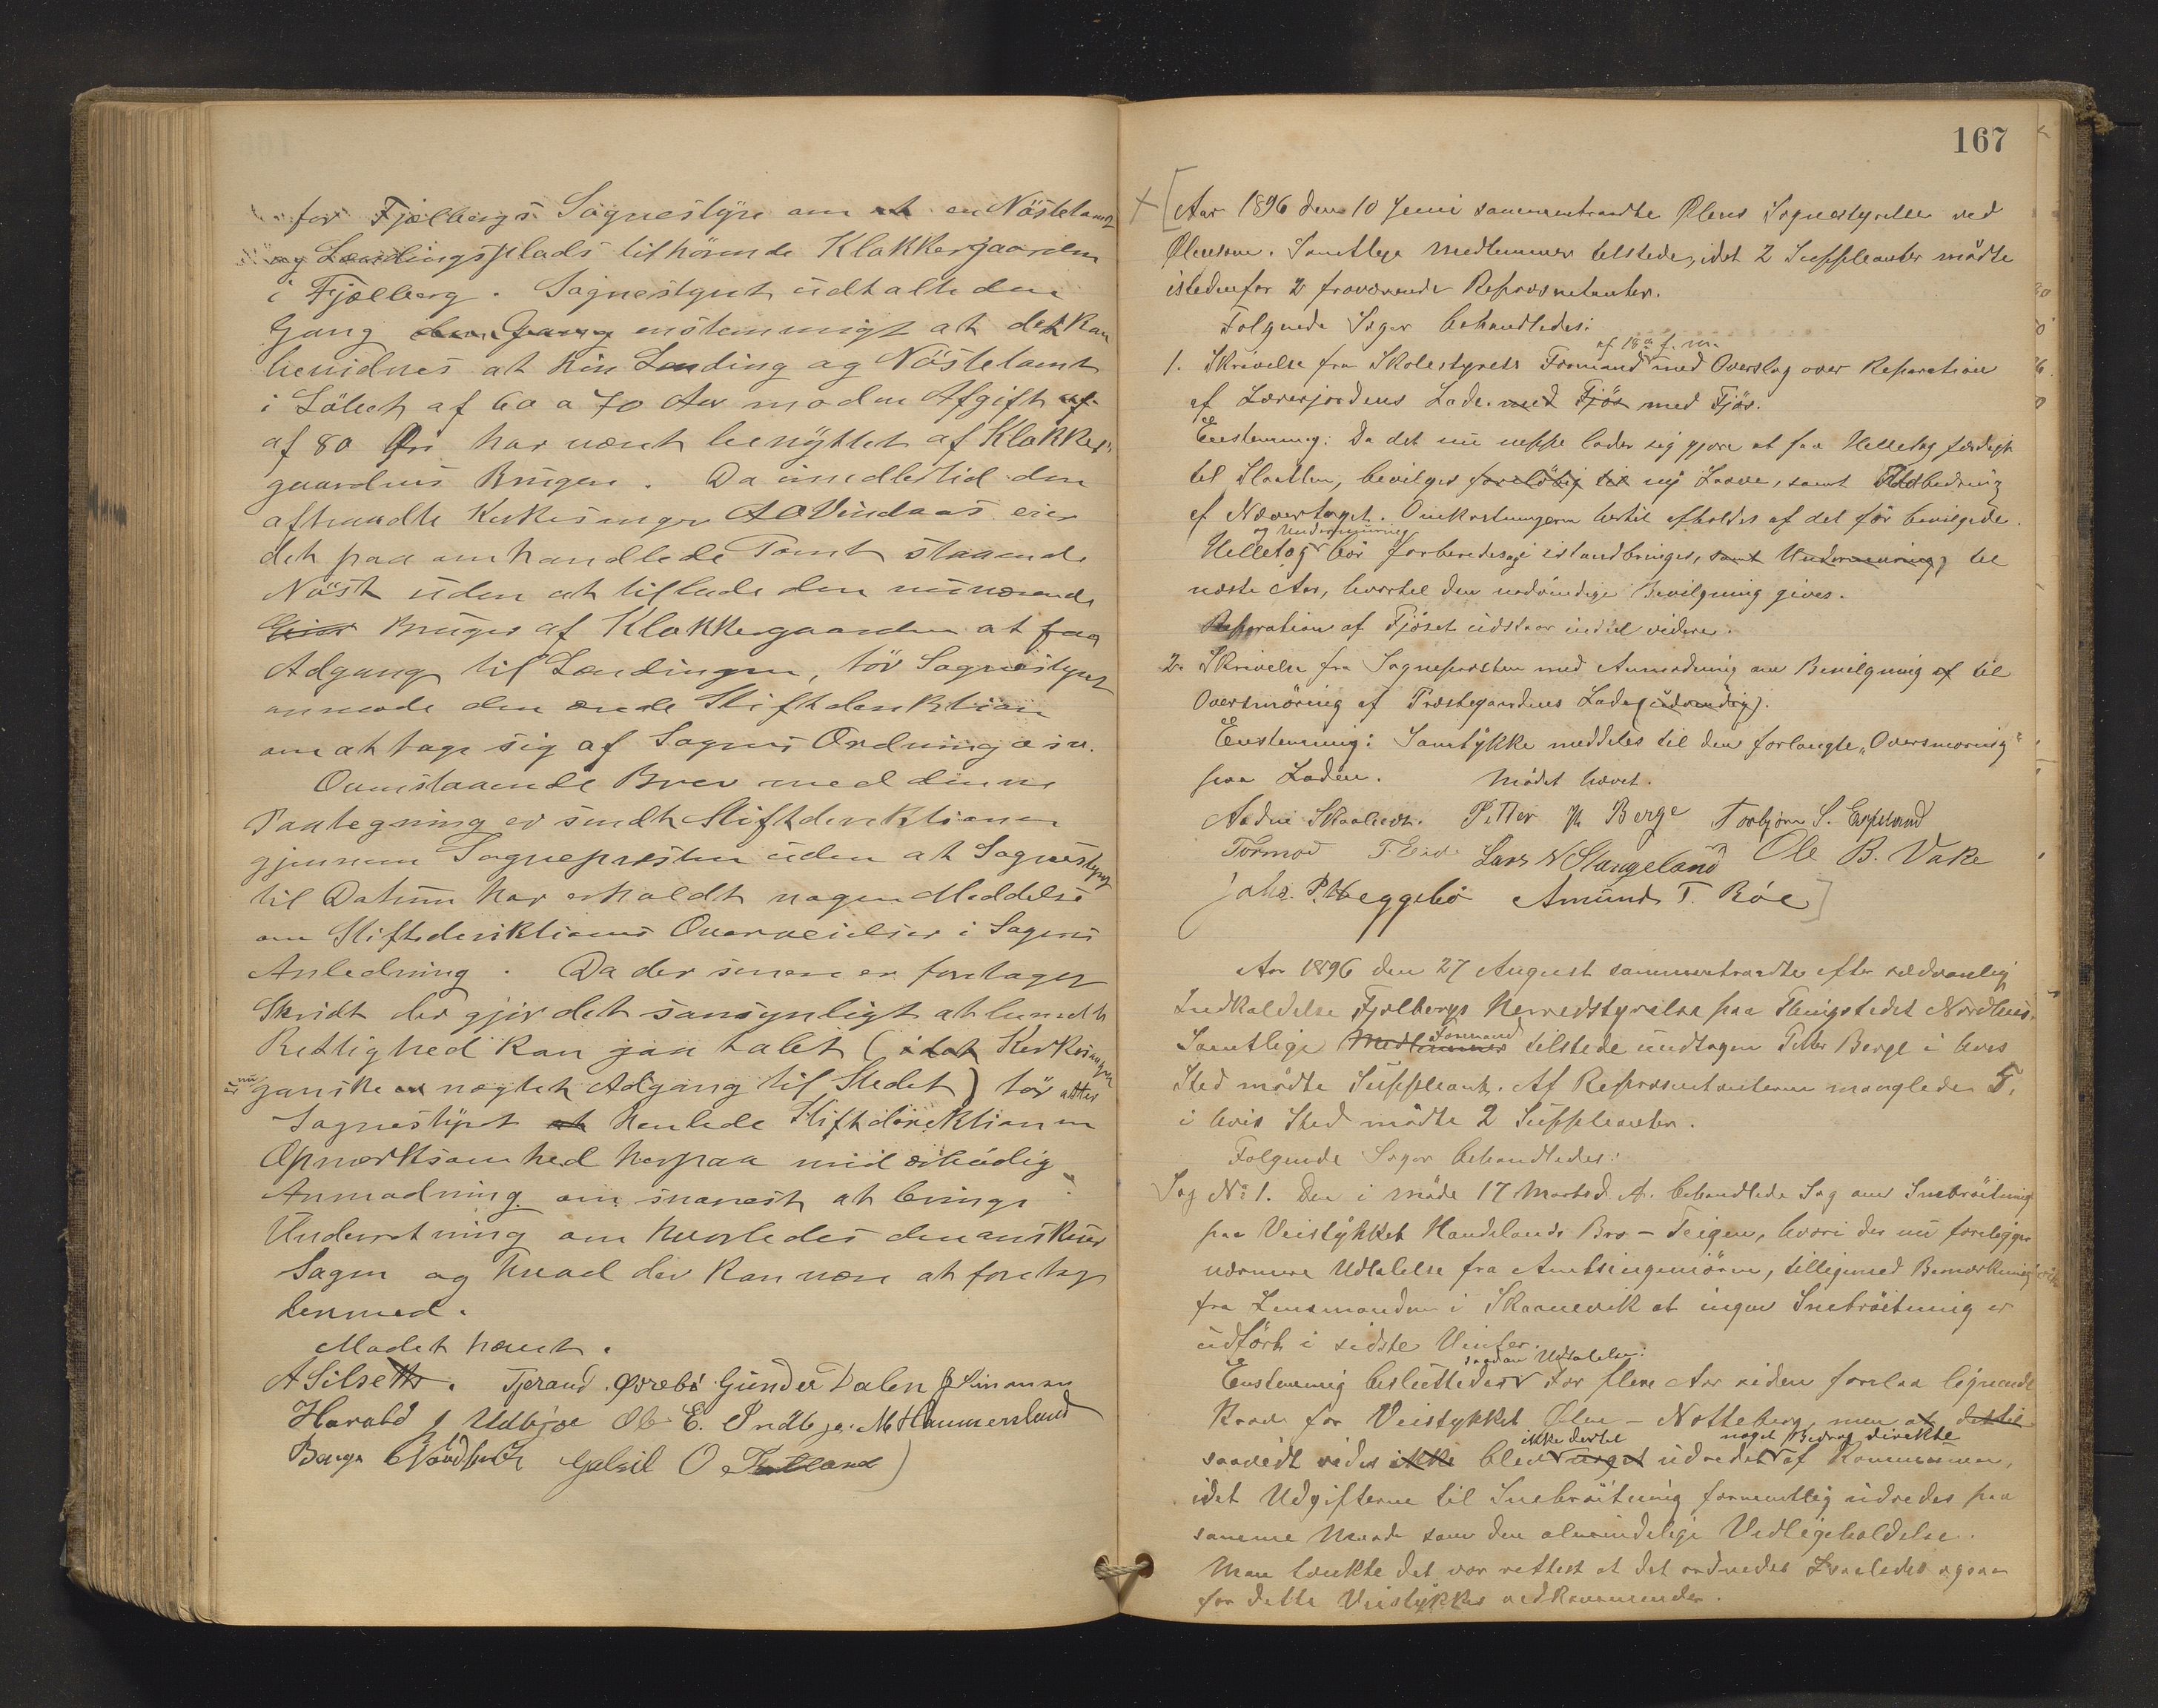 for Fjælbergs Sognestyre om at en Nöstetomt
og Landingsplads tilhörende Klokkergaarden
i Fjælberg. Sognestyret udtalte den
Gang den Gang enstemmigt at det kan
bevidnes at hin Landing og Nöstetomt
i Löbet af 60 a 70 Aar mod en Afgift af
af 80 Öre har været benyttet af Klokker-
gaardens Bruger. Da imidlertid den
afsatte Kirkesanger A O Vindaas eier
det paa omhandlede Tomt staaende
Nöst uden at tillade den nuværende
Eier Bruger af Klokkergaarden at faa
Adgang til Landingen, tör Sognestyret
anmode den ærede Stiftsdirektion
om at tage sig af Sagens Ordning o s v.
Ovenstaaende Brev med denne
Paategning er sendt Stiftdirektionen
gjennem Sognepresten uden at Sognestyret
til Datum har erholdt nogen Meddelse
om Stiftsdirektionens Overveielser i Sagens
Anledning. Da der senere er foretaget
Skridt der gjör det sansynligt at benevnte
Rettighed kan gaa tabt (idet Kirkesanger
nu
er ganske en nægtet Adgang til Stedet) tör atter
Sognestyret at henlede Stiftdirektionens
Opmærksomhed herpaa med ærbödig
Anmodning om snarest at bringe
Underretning om hvorledes den ansküer
Sagen og hvad der kan være at foretage
dermed.
Mödet hævet.
A Silseth. Tjerand Övrebö Gunder Dalen J Simonsen
Harald J Udbjoe Ole E. Indbjo. M Hammersland
Börge Nordhuus Gabriel O Fatland
167
Aar 1896 den 10 Juni sammentraadte Ølens Sognestyrelse ved
Ølensøen. Samtlige Medlemmer tilstede, idet 2 Suppleanter mødte
istedenfor 2 fraværende Repræsentanter.
Følgende Sager behandledes:
af 18de f. m.
1. Skrivelse fra Skolestyrets Formand med Overslag over Reparation
af Lærerjordens Lade med Fjös med Fjös.
Eenstemmig: Da det nu neppe lader sig gjøre at faa Helletag færdigt
til Slaatten, bevilges foreløbig til ny Laave, samt Udbedring
af Nævertaget. Omkostningerne hertil afholdes af det før bevilgede.
og Undermuring
Helletag bör forberedes og istandbringes, samt Undermuring, til
næste Aar, hvortil den nødvendige Bevilgning gives.
Reparation af Fjöset udstaar indtil videre.
2. Skrivelse fra Sognepræsten med Anmodning om Bevilgning af til
Oversmöring af Præstegaardens Lade (udvendig).
Eenstemmig: Samtykke meddeles til den forlangte "Oversmøring"
paa Laden. Mödet hævet.
Aadne Skaalnes. Petter M Berge Torbjørn S. Espeland
Tormod T. Eide Lars N Stangeland Ole B. Vake
Johs. P. Heggebö Amund T. Böe
Aar 1896 den 27 August sammentraadte efter sedvanlig
Indkaldelse Fjelbergs Herredstyrelse paa Thingstedet Nordhus.
Formænd
Samtlige Medlemmer tilstede undtagen Petter Berge i hvis
Sted mødte Suppleant. Af Repræsentanterne manglede 5,
i hvis Sted mødte 2 Suppleanter.
Følgende Sager behandledes:
Sag No 1. Den i Møde 17 Marts d. A. behandlede Sag om Snebröitning
paa Veistykket Handelands Bro - Teigen, hvori der nu foreligger
nærmere Udtalelse fra Amtsingeniøren, tilligemed Bemærkning
fra Lensmanden i Skaanevik at ingen Snebröitning er
udført i sidste Vinter.
saadan Udtalelse:
Eenstemmig besluttedes For flere Aar siden forelaa lignende
Krav for Veistykket Ølen - Notteberg, men at dertil
ikke dertil noget Bidrag direkte
saavidt vides ikke blev noget udredet af Kommunen,
idet Udgifterne til Snebröitning formentlig udredes paa
samme Maade som den almindelige Vedligeholdelse.
Man tænkte det var rettest at det ordnedes saaledes ogsaa
for dette Veistykkes vedkommende.